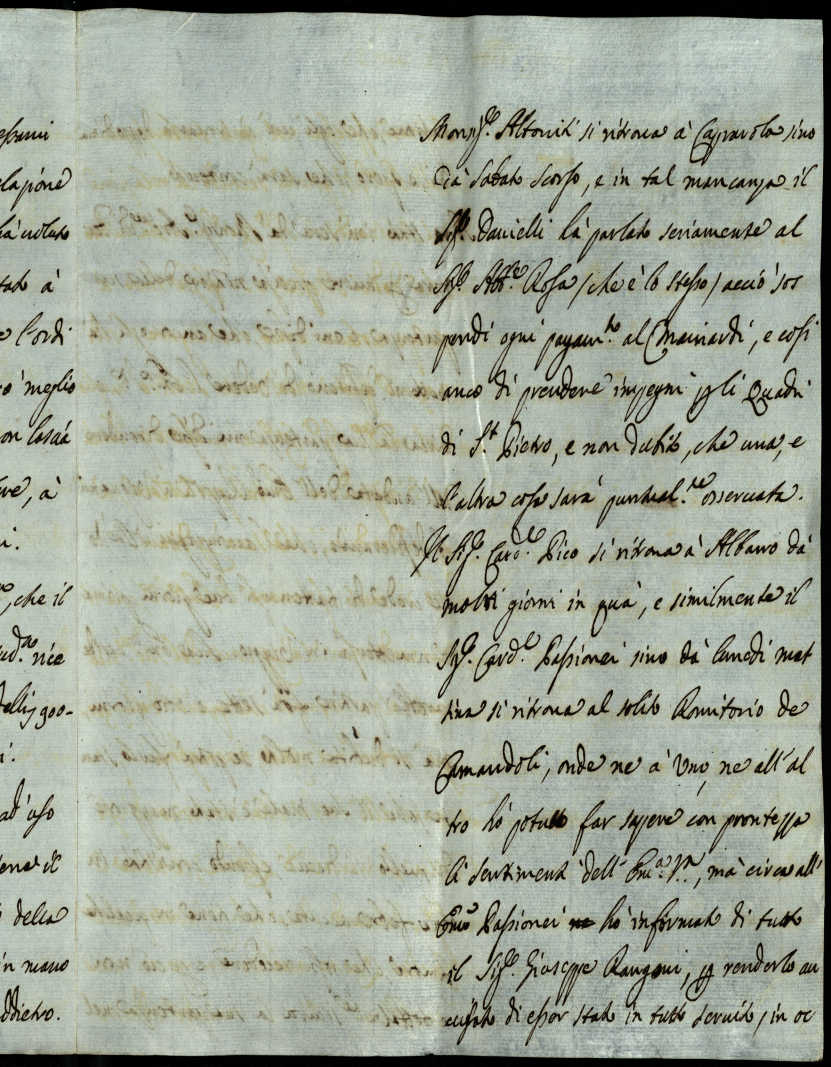 essarii
elapione
hà uoluto
tato à
e l'ordi
rò meglio
on lascià
ere, à
i.
, che il
ud.ª rice
à.
ad' uso
iene il
della
in mano
ddietro.
Monsig.r Altoviti si ritroua à Capravola sino
da Sabato scorso, e in tal mancanza il
Sig.r Danielli hà parlato seriamente al
Sig.r Abb.e Rosa (che è lo stesso) acciò sos
pendi ogni pagam.to al Mainardi, e così
anco di prendere impegni p gli Quadri
di S.t Pietro, e non dubito, che una, e
l'altra cosa sarà puntual.te osseruata.
Il Sig.r Card.le Pico si ritroua à Albano dà
molti giorni in quà, e similmente il
Sig.r Card.le Passionei sino dà lunedì mat
tina si ritroua al solito Romitorio de
Camandoli, onde ne à Uno, ne all'al
tro hò potuto far sapere con prontezza
li sentimenti dell' Em.ª V.ª, mà circa all'
Emo Passionei hò informato di tutto
il Sig.r Giuseppe Rangoni, p renderlo au
uisato di esser stato in tutto seruito, in oc